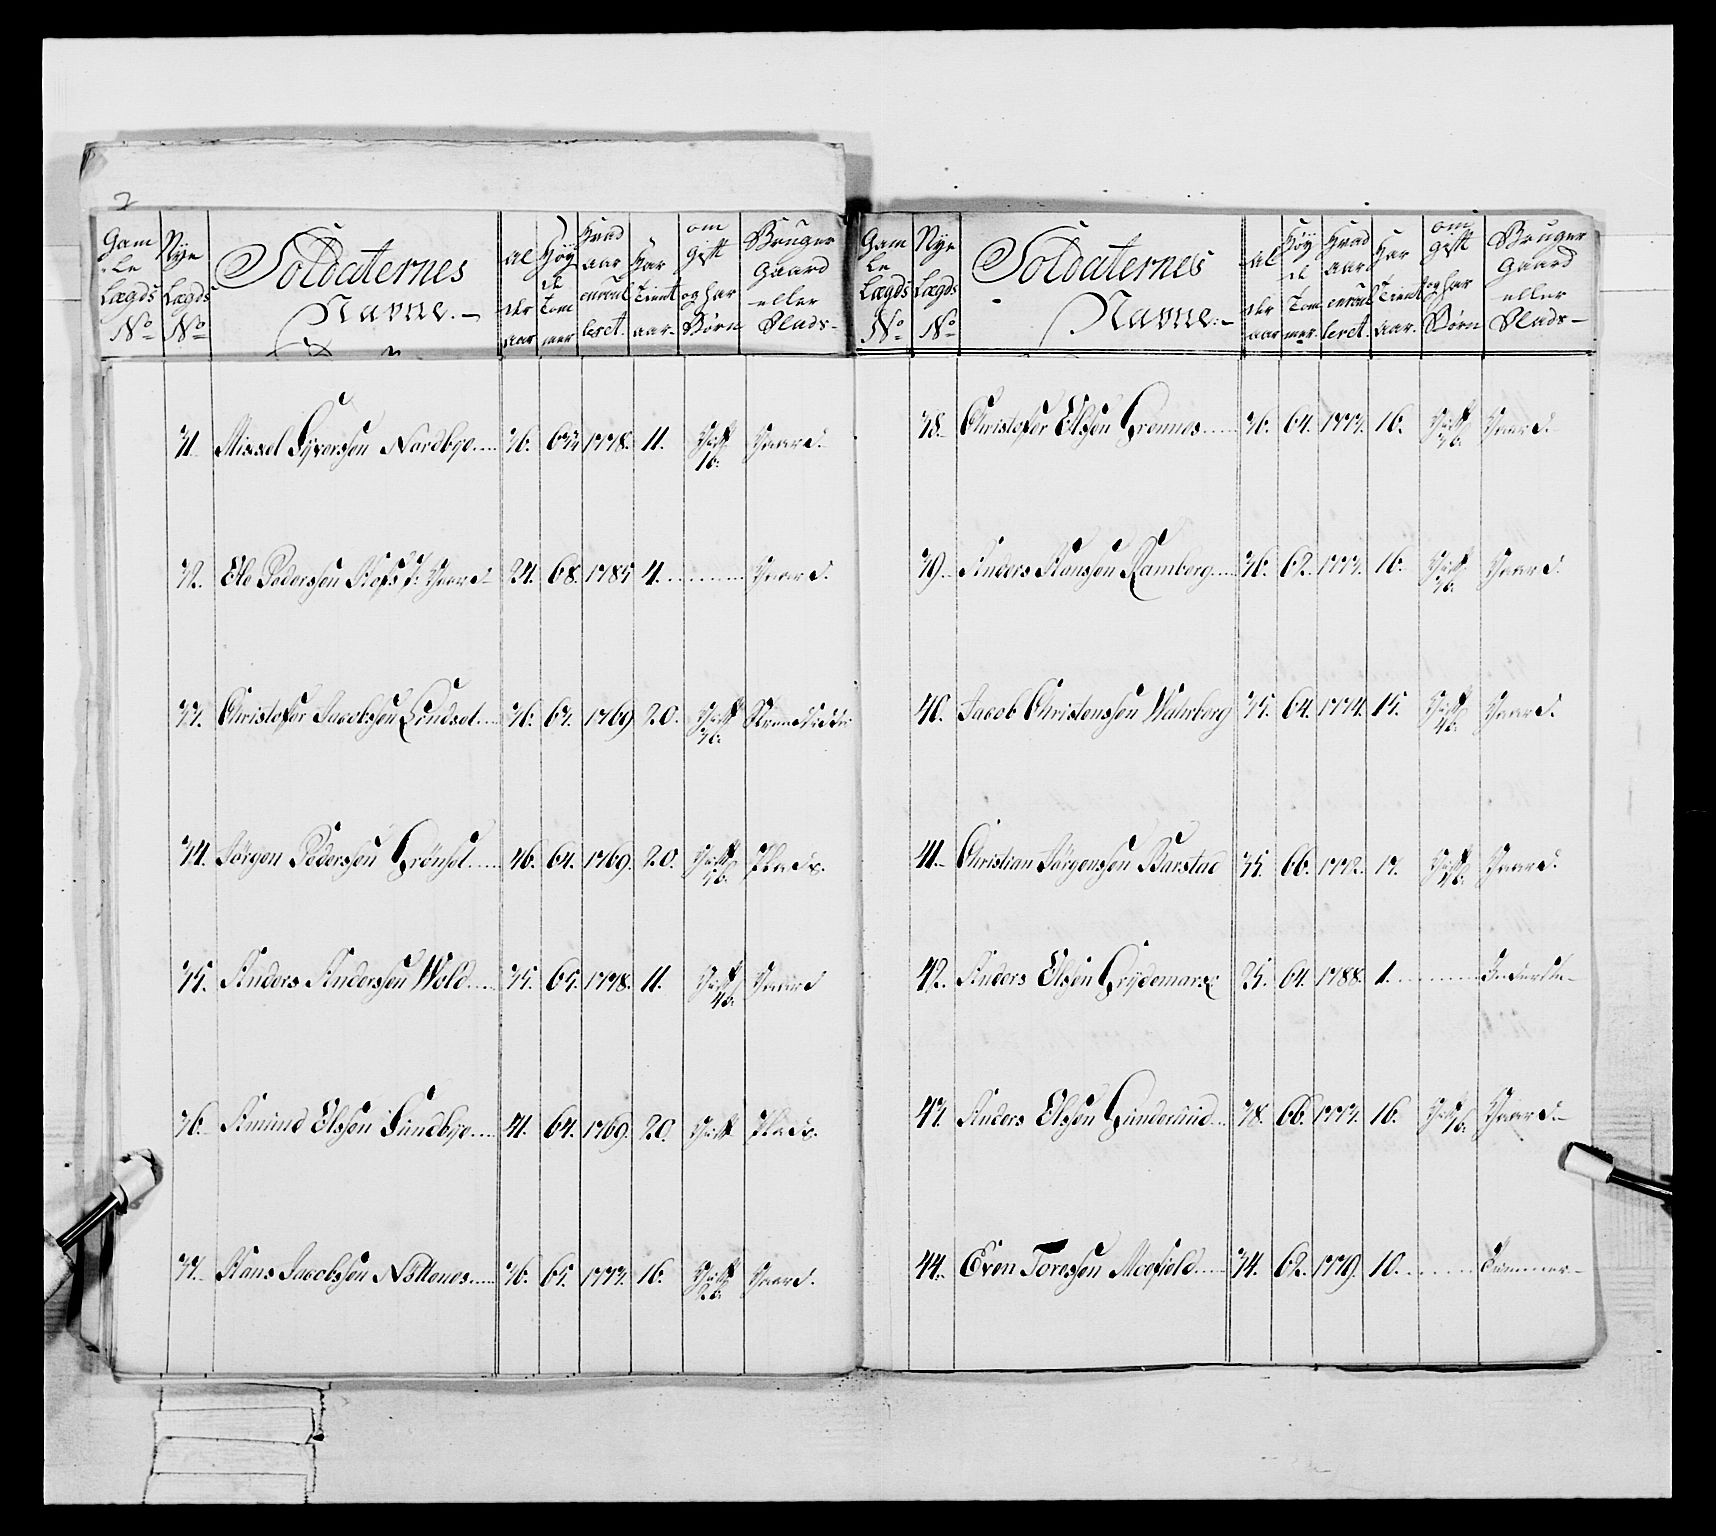 2
Gamle Lægds No Nye Lægds No Soldaternes Navne. Alder aar Høyde Tommer Hvad aar enroulleret Har Tient aar om gift og har Børn Bruger Gaard eller Plads
31. Mickel Syversen Nordbye 36. 63¾ 1778. 11. Gift 1 b. Gaard.
32. Ole Pedersen Gaard 24. 68. 1785 4. Gaard.
33. Christofer Jacobsen Lindset 36. 67. 1769 20. Gift 3 b.
34. Jörgen Pedersen Grönset 46. 64. 1769. 20. Gift 5 b. Plads.
35. Anders Andersen Wold 35. 65. 1778. 11. Gift 4 b. Gaard
36. Amund Olssen Sundbye 41. 64. 1769. 20. Gift Plads.
37. Hans Jacobsen Nöttenes 36. 65. 1773. 16. Gift 2 b. Gaard.
Gamle Lægds No Nye Lægds No Soldaternes Navne. Alder aar Høyde Tommer Hvad aar enroulleret Har Tient aar. om gift og har Børn Bruger Gaard eller Plads
38. Christofer Olsen Grönnes 36. 64. 1773. 16. Gift 3 b. Gaard.
39. Anders Hansen Ramberg 36. 62. 1773. 16. Gift 3 b. Gaard.
40. Jacob Christensen Walrberg 35. 64. 1774. 15. Gift 4 b. Gaard.
41. Christian Jörgensen Barstad 35. 66. 1772. 17. Gift Gaard.
42. Anders Olsen 25. 64. 1788. 1. Inderste
43. Anders Olsen Gunderud 38. 66. 1773. 16. Gift Gaard.
44. Even Toresen Moefield 34. 62. 1779. 10. Tømmer